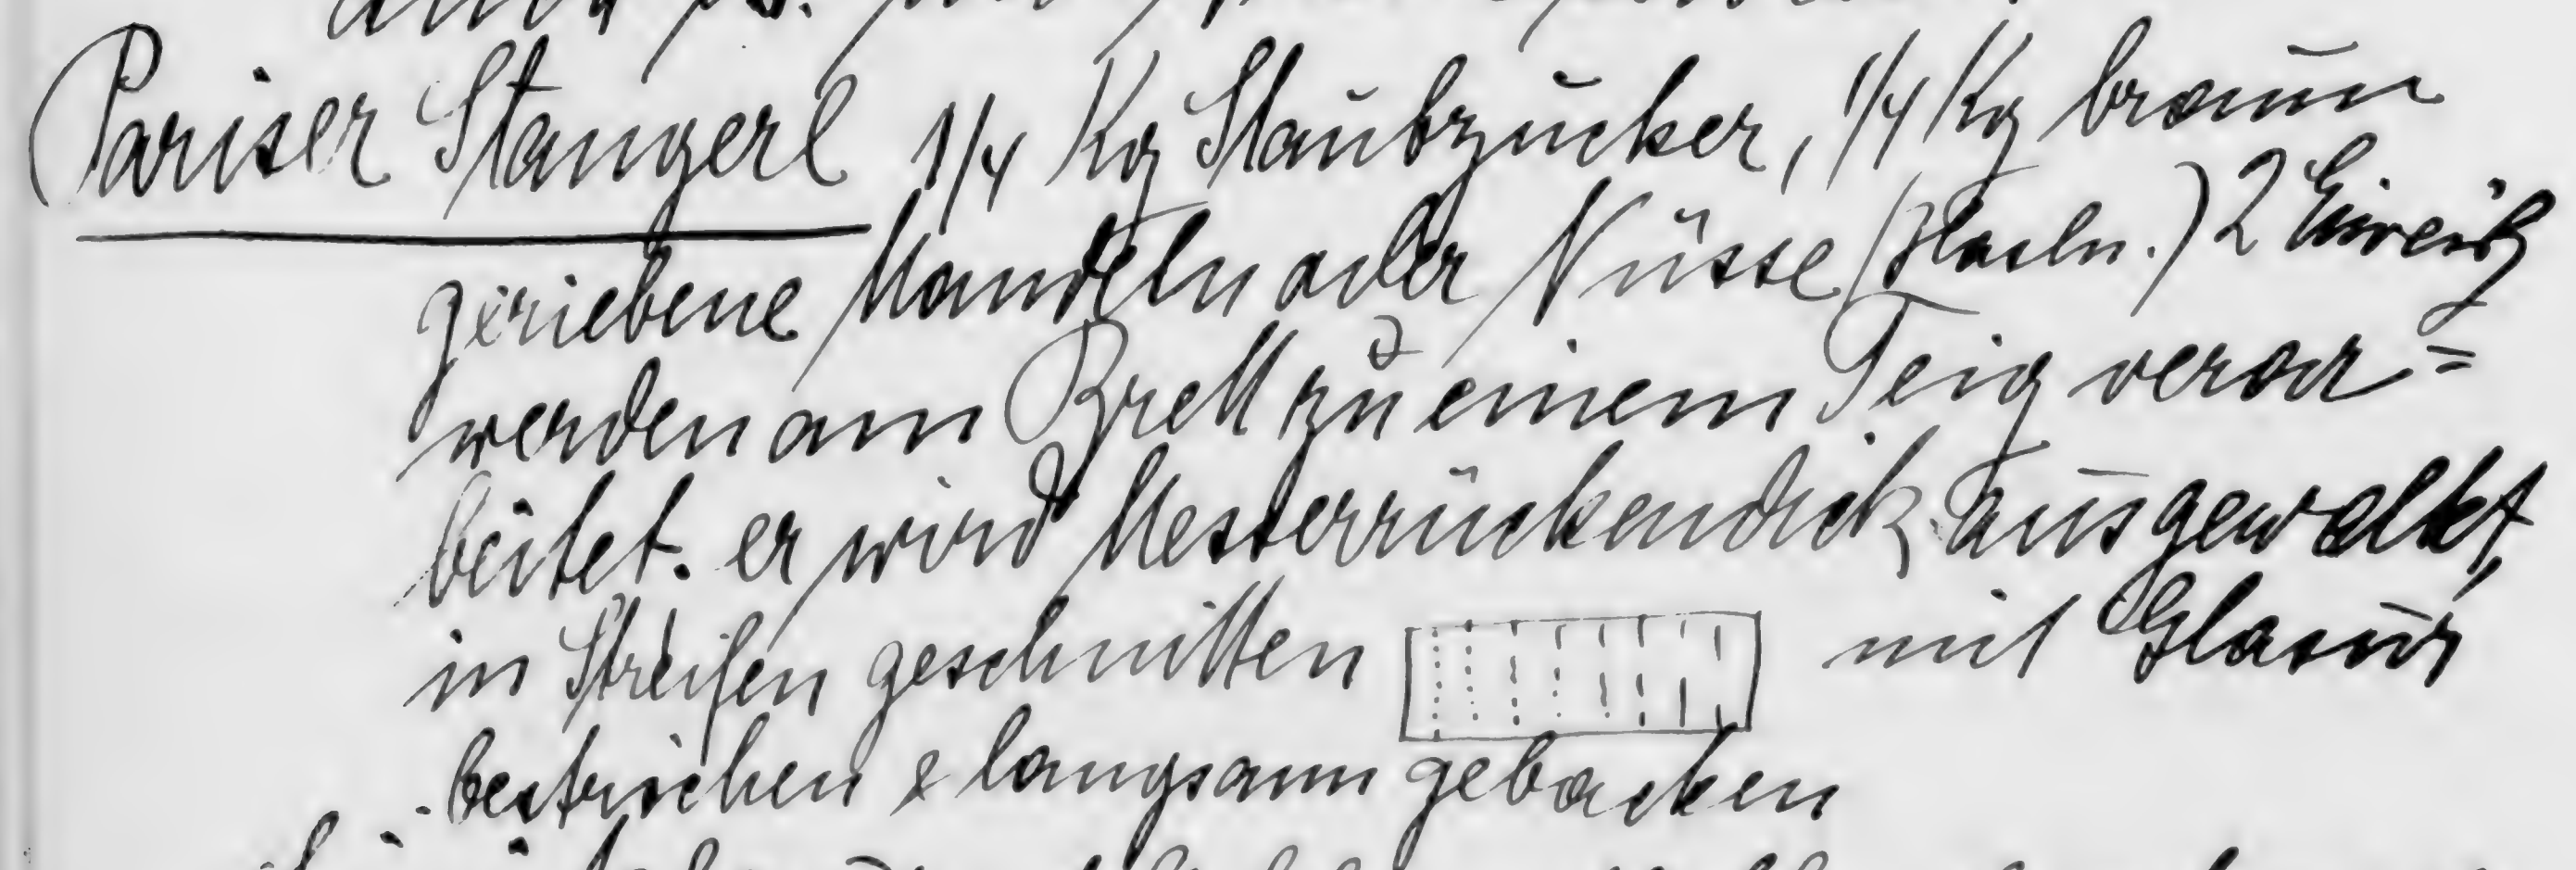 Pariser Stangerl 1/4 Kg Staubzucker, 1/4 Kg braun
geriebene Mandeln oder Nüsse (Haseln.) 2 Eiweiß
werden am Brett zu einem Teig verar=
beitet. er wird Messerrückendick ausgewalkt,
in Streifen geschnitten mit Glasur
bestrichen & langsam gebacken